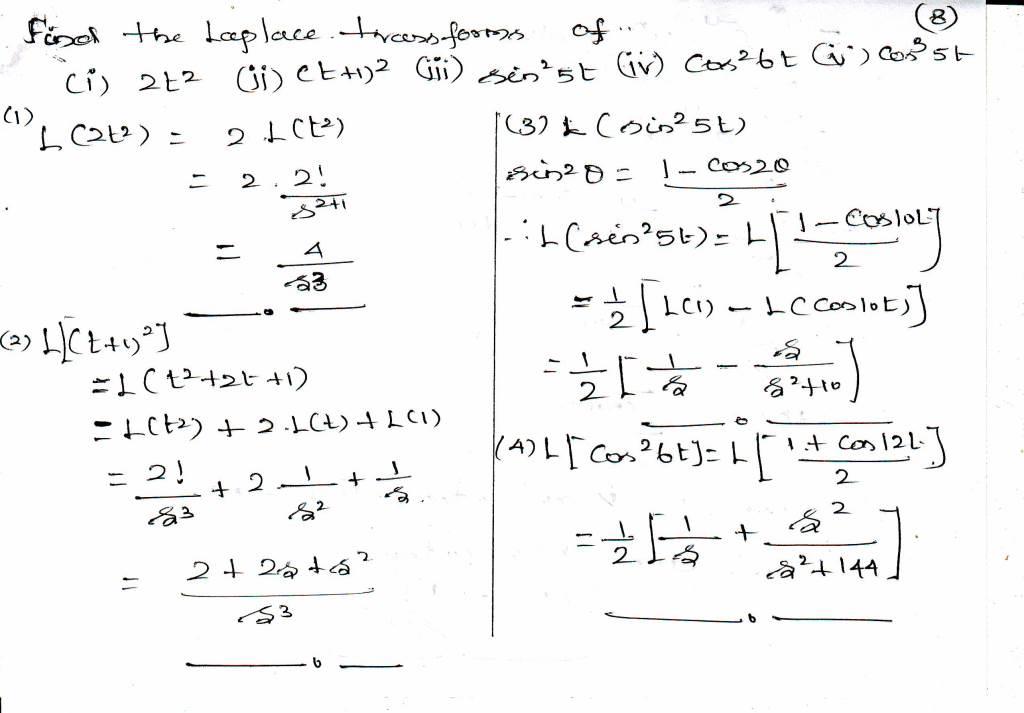 (8)
Find the Laplace transforms of..
(i) 2t² (ii) (t+1)² (iii) sin²5t (iv) cos²6t (v) cos³5t
(1) L(2t²) = 2 L(t²)
= 2 . 2!/s²⁺¹
= 4/s³
(2) L[(t+1)²]
= L(t²+2t+1)
= L(t²) + 2.L(t) + L(1)
= 2!/s³ + 2 1/s² + 1/s.
= (2 + 2s + s²)/s³
(3) L(sin²5t)
sin²θ = (1 - cos2θ)/2
∴ L(sin²5t) = L[(1 - cos10t)/2]
= 1/2 [L(1) - L(cos10t)]
= 1/2 [1/s - s/(s²+10)]
(4) L[cos²6t] = L[(1 + cos12t)/2]
= 1/2 [1/s + s²/(s²+144)]